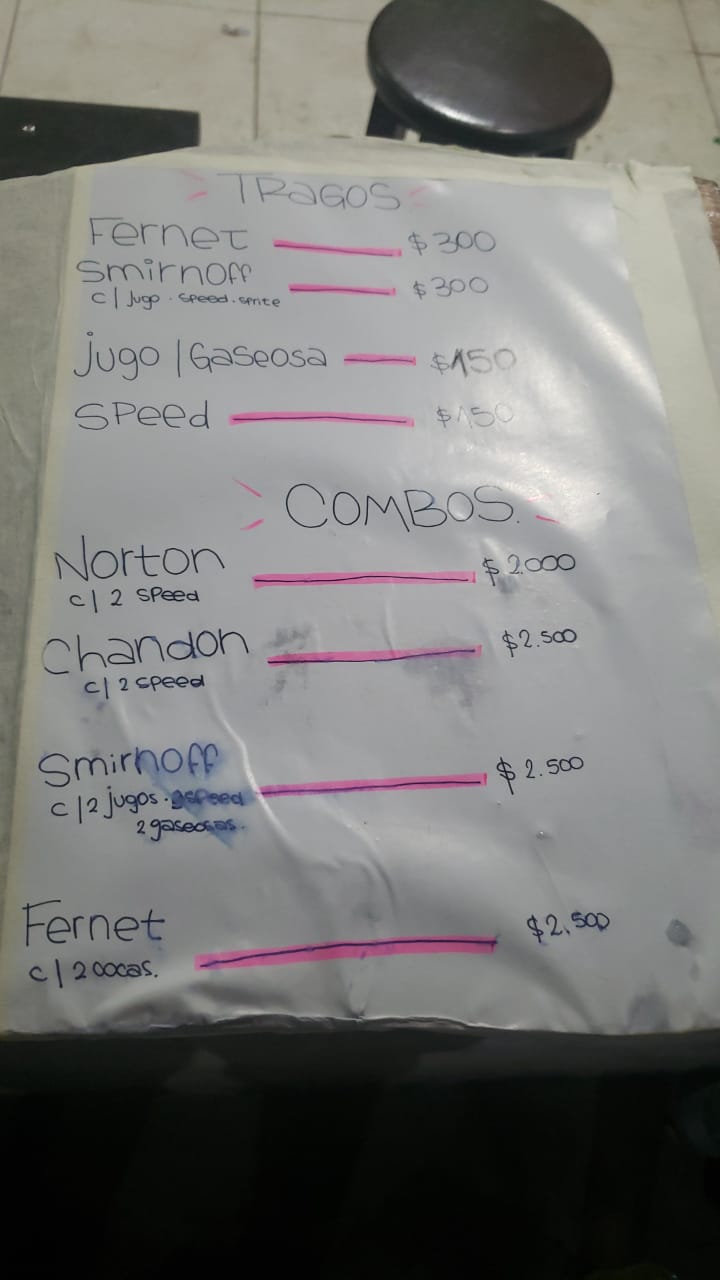 TRAGOS
Fernet $300
Smirnoff $300
c/ jugo . speed . sprite
jugo / Gaseosa $150
SPeed $150
COMBOS.
Norton $2.000
c/ 2 SPeed
Chandon $2.500
c/ 2 speed
Smirnoff $2.500
c/ 2 jugos . 2 speed
2 gaseosas.
Fernet $2.500
c/ 2 cocas.